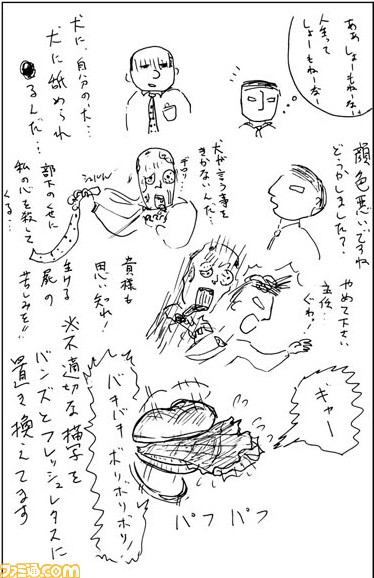 ああしょーもねーな
人生って
しょーもねーなー
犬に、自分の犬…
犬に舐められ
るんだ…
顔色悪いですね
どうかしました?
犬が言う事を
きかないんだ…
ギロリ…
シュルルル
部下のくせに
私の心を殺して
くる…
やめて下さい
主任…
ぐわっ
貴様も
思い知れ!
生ける
屍の
苦しみを!!
ギャー
バキバキ
ボリボリボリ
パフ パフ
※不適切な描写を
バンズとフレッシュレタスに
置き換えてます
ファミ通.com